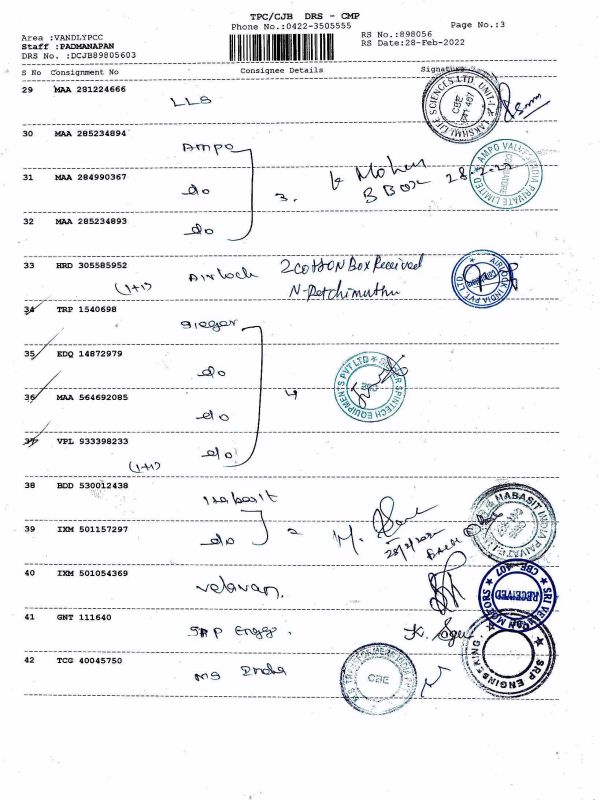 TPC/CJB DRS - CMP
Phone No.:0422-3505555
Page No.:3
Area :VANDLYPCC
Staff :PADMANAPAN
DRS No. :DCJB89805603
RS No.:898056
RS Date:28-Feb-2022
S No Consignment No Consignee Details Signature
29 MAA 281224666
LLS
LAKSHMI LIFE SCIENCES LTD. UNIT-I
CBE
641 407
30 MAA 285234894
Ampo
31 MAA 284990367
do
3. Mohan
B Box 28.2.22
AMPO VALVES INDIA PRIVATE LIMITED
COIMBATORE
32 MAA 285234893
do
33 HRD 305585952
(1+1) Airlock 2 COTTON Box Received
N-Petchimuthu
AIRLOCK INDIA PVT. LTD.
34 TRP 1540698
Sieger
35 EDQ 14872979
do
SIEGER SPINTECH EQUIPMENTS PVT LTD
36 MAA 564692085
do
4
37 VPL 933398233
do
(1+1)
38 BDD 530012438
Habasit
HABASIT INDIA PRIVATE LTD
39 IXM 501157297
do
2
28/2/2022
40 IXM 501054369
Velavan.
SRI VELAVAN MOTORS
CBE-407
RECEIVED
41 GNT 111640
SRP Engg.
SRP ENGINEERING
42 TCG 40045750
MS India
CBE